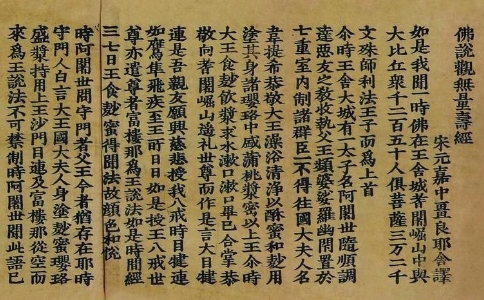 佛說觀無量壽經
宋元嘉中畺良耶舍譯
如是我聞一時佛在王舍城耆闍崛山中與
大比丘衆千二百五十人俱菩薩三万二千
文殊師利法王子而為上首
尒時王舍大城有一太子名阿闍世隨順調
達惡友之教收執父王頻婆娑羅幽閇置於
七重室內制諸群臣一不得往國大夫人名
韋提希恭敬大王澡浴清淨以酥蜜和麨用
塗其身諸瓔珞中盛蒲桃漿密以上王尒時
大王食麨飲漿求水漱口漱口畢已合掌恭
敬向耆闍崛山遥礼世尊而作是言大目犍
連是吾親友願興慈悲授我八戒時目犍連
如鷹隼飛疾至王所日日如是授王八戒世
尊亦遣尊者富樓那為王說法如是時間經
三七日王食麨蜜得聞法故顔色和悅
時阿闍世問守門者父王今者猶存在耶時
守門人白言大王國大夫人身塗麨蜜瓔珞
盛漿持用上王沙門目連及富樓那從空而
來為王說法不可禁制時阿闍世聞此語已